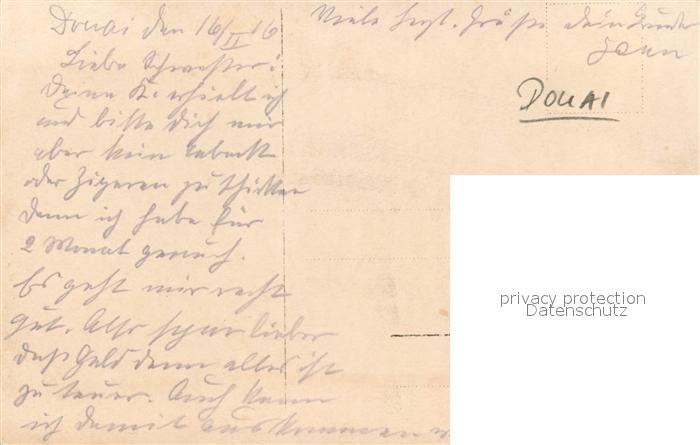 Douai den 16/II 16
Liebe Schwester!
Deine K. erhielt ich
und bitte dich mir
aber kein Taback
oder Zigaren zu schicken
denn ich habe für
2 Monat genuch.
Es geht mir recht
gut. Also spar lieber
das Geld denn alles ist
zu teuer. Auch kann
ich damit auskommen
Viele herzl. Grüße dein Bruder
DOUAI
privacy protection
Datenschutz